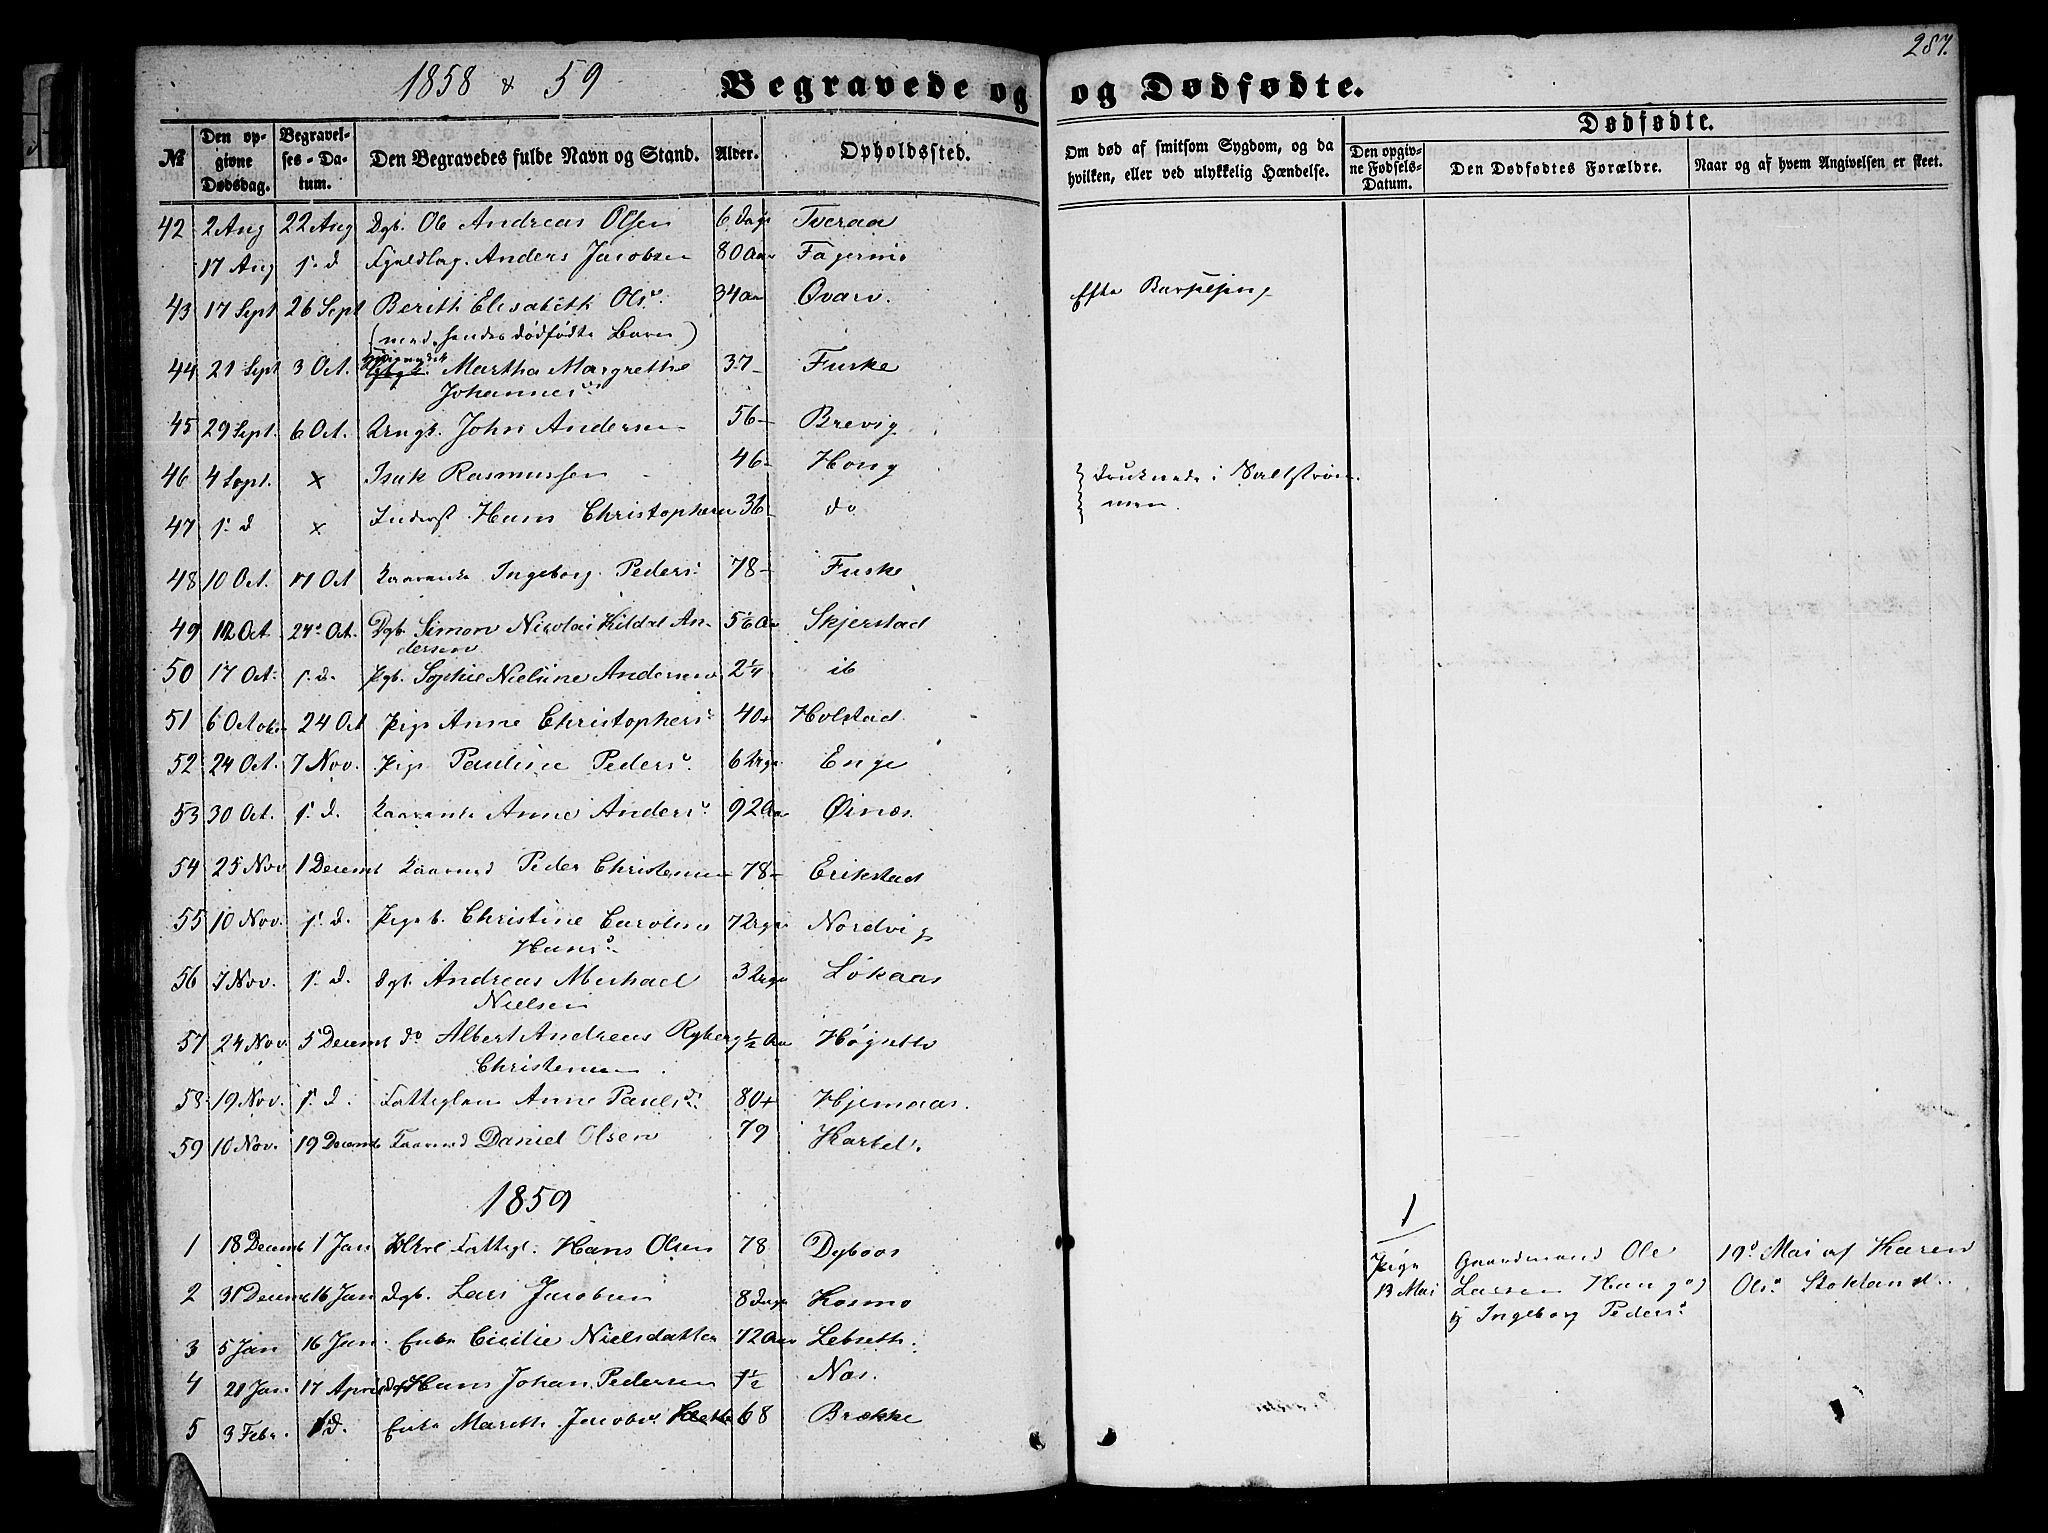 287.
1858 & 59
Begravede og
og Dødfødte.
№
Den opgivne Dødsdag.
Begravelses-Datum.
Den Begravedes fulde Navn og Stand.
Alder.
Opholdssted.
Om død af smitsom Sygdom, og da hvilken, eller ved ulykkelig Hændelse.
Dødfødte.
Den opgivne Fødsels-Datum.
Den Dødfødtes Forældre.
Naar og af hvem Angivelsen er skeet.
42 2 Aug 22 Aug Dgb. Ole Andreas Olsen 6 Dage Tveraa
17 Aug s. d. Anders Jacobsen 80 Aar Fagermo
43 17 Sept 26 Sept Berith Elisabeth Olsd. 34 Aar Qvarv. Efter Barselseng
(med hendes dødfødte Barn)
44 21 Sept 3 Oct. Martha Margrethe 37- Fuske
Johannesd.
45 29 Sept. 6 Oct. Ungk. John Andersen 56- Brevig
46 4 Sept. × Isak Rasmussen 46- Houg Druknede i Saltstrøm-
47 s. d × Inderst Hans Christophersen 36- do men.
48 10 Oct. 17 Oct Kaarenke Ingeborg Pedersd. 78- Fuske
49 12 Oct 24de Oct. Dgb. Simon Nicolai Kildal An- 5 1/6 Aar Skjerstad
dersen
50 17 Oct. s. d. Pgb. Sophie Nielsine Andersen 2 1/4 ib
51 6 October 24 Oct Pige Anne Christophersd. 40+ Holstad.
52 24 Oct. 7 Nov. Pige Pauline Pedersd. 6 Uger Enge
53 30 Oct. s. d. Kaarenke Anne Andersd. 92 Aar Øinæs.
54 25 Nov 1 Decemb Kaarmd Peder Christensen 78- Erikstad
55 10 Nov. s. d. Pigeb. Christine Caroline 7 Uger Nordvig
Hansd.
56 7 Nov. s. d. Dgb. Andreas Michael 3 Uger Løkaas
Nielsen
57 24 Nov. 5 Decemb do Albert Andreas Ryberg 1/2 Aar Høgsetlv
Christensen.
58 19 Nov. s. d. Fattiglem Anne Paulsd. 80+ Hjemaas.
59 10 Nov. 19 Decemb Kaarmd Daniel Olsen 79 Karbøl.
1859
1
1 18 Decemb 1 Jan Fattigl. Hans Olsen 78 Dyboos Pige Gaardmand Ole 19de Mai af Karen
2 31 Decemb 16 Jan Dgb. Lars Jacobsen 8 Dage Kosmo 13 Mai Larsen Houg og Olsd. Stokland.
H. Ingeborg Pedersd.
3 5 Jan 16 Jan. Enke Cicilie Nielsdatter 72 Aar Løbseth.
4 21 Jan 17 April Dgb Hans Johan Pedersen 1 1/2 Næs.
5 3 Febr. s. d. Enke Marethe Jacobsd. 68 Brække